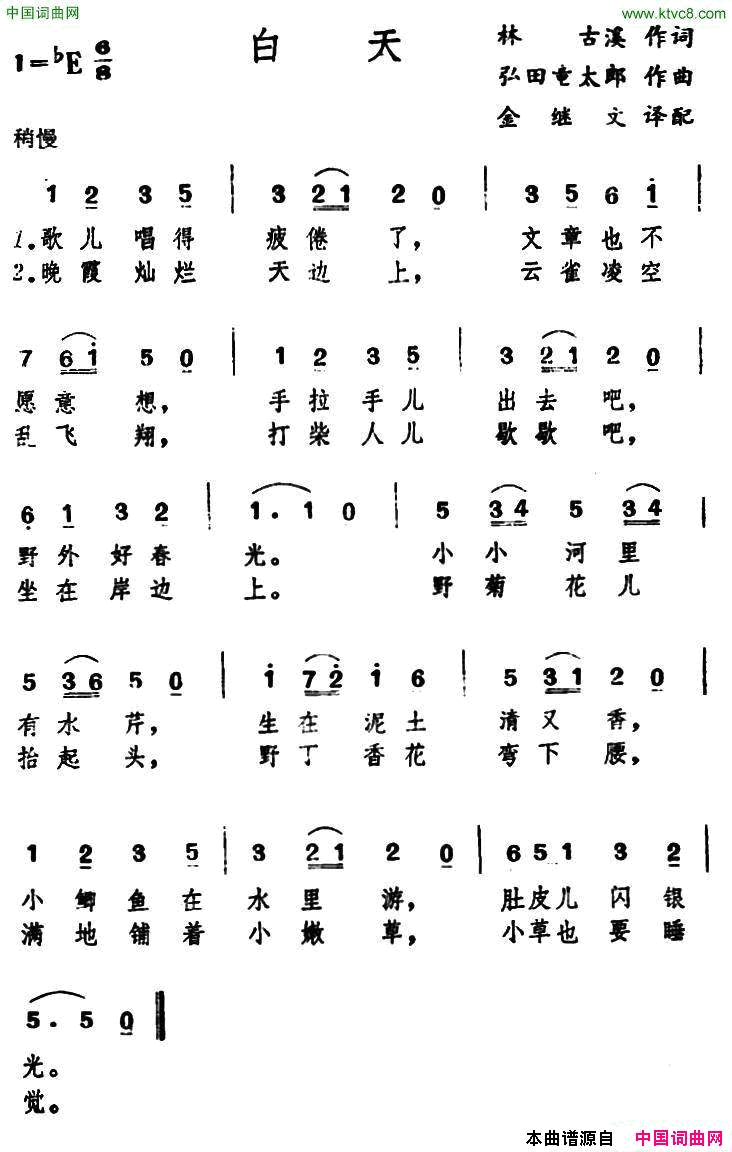 中国词曲网
www.ktvc8.com
白天
1=♭E 6/8
林古溪 作词
弘田竜太郎 作曲
金继文 译配
稍慢
1 2 3 5 | 3 21 2 0 | 3 5 6 i |
1.歌儿唱得 疲倦了, 文章也不
2.晚霞灿烂 天边上, 云雀凌空
7 6i 5 0 | 1 2 3 5 | 3 21 2 0 |
愿意想, 手拉手儿 出去吧,
乱飞翔, 打柴人儿 歇歇吧,
6 1 3 2 | 1. 1 0 | 5 34 5 34 |
野外好春 光。 小小河里
坐在岸边 上。 野菊花儿
5 36 5 0 | i 72 i 6 | 5 31 2 0 |
有水芹, 生在泥土 清又香,
抬起头, 野丁香花 弯下腰,
1 2 3 5 | 3 21 2 0 | 6 5 1 3 2 |
小鲫鱼在 水里游, 肚皮儿闪银
满地铺着 小嫩草, 小草也要睡
5. 5 0 ‖
光。
觉。
本曲谱源自 中国词曲网